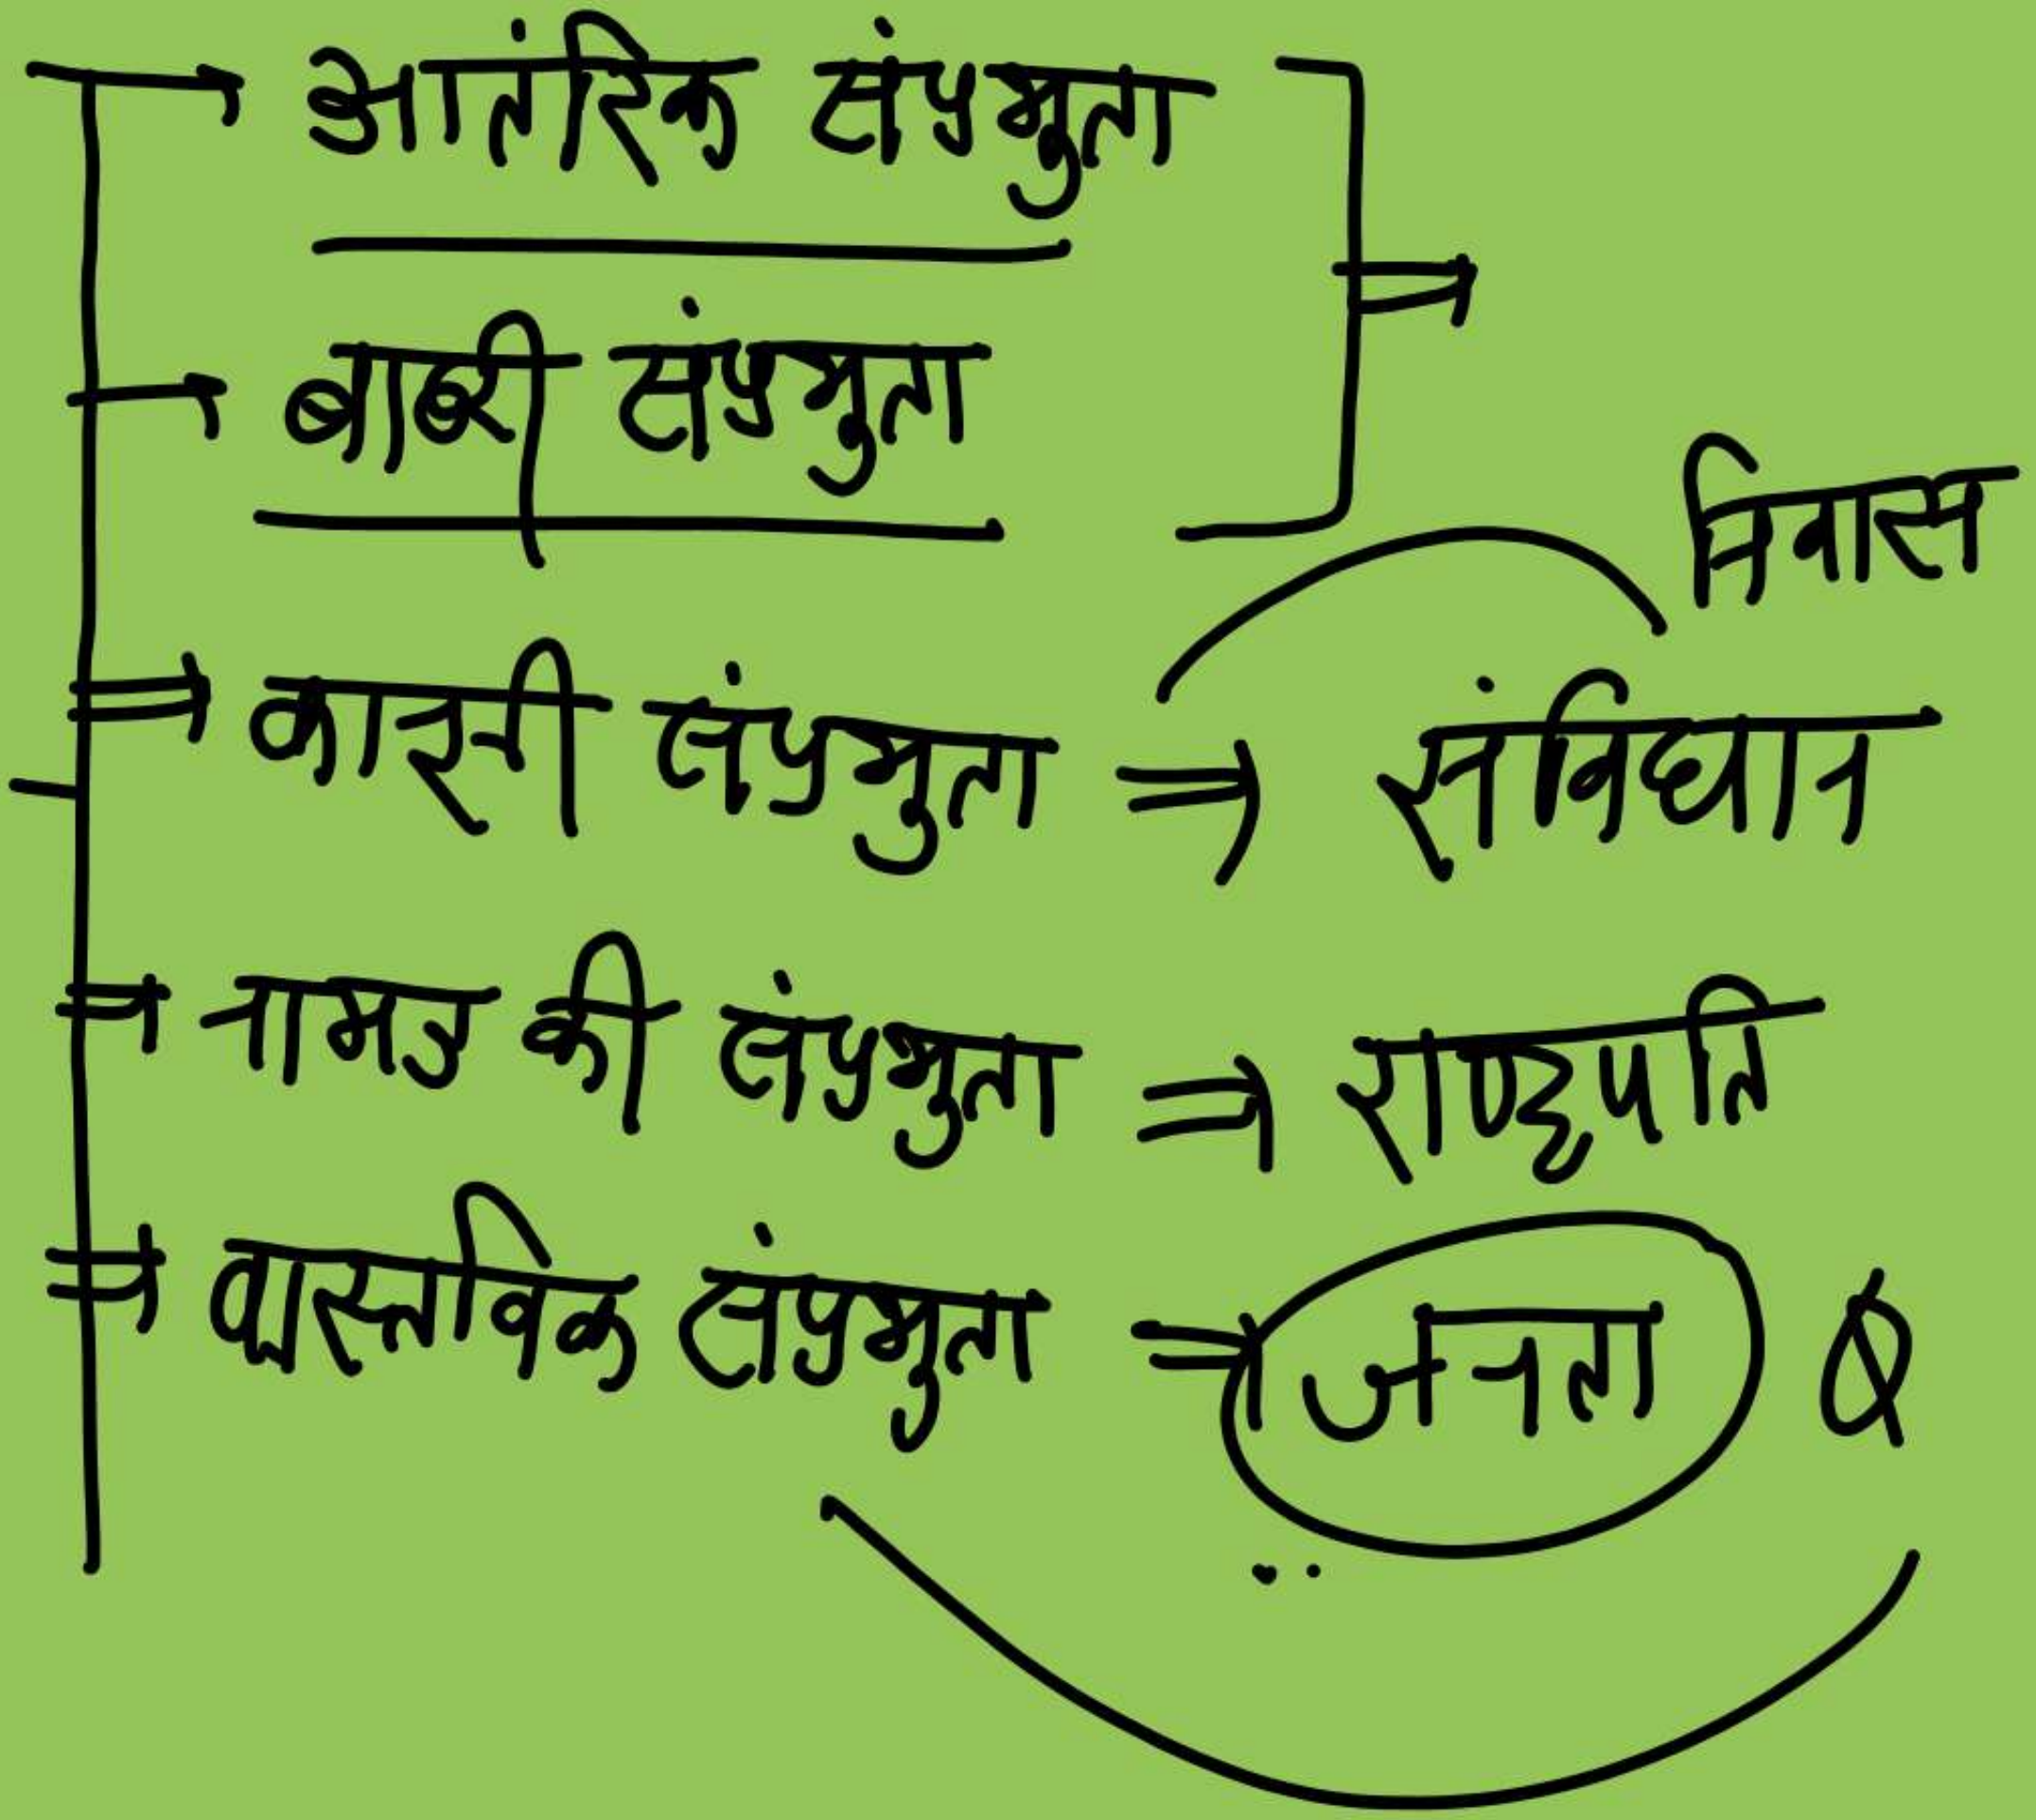 आतंरिक संप्रभुता
बाहरी संप्रभुता
निवास
संप्रभुता ⇒ संविधान
की संप्रभुता ⇒ राष्ट्रपति
वास्तविक संप्रभुता ⇒ जनता